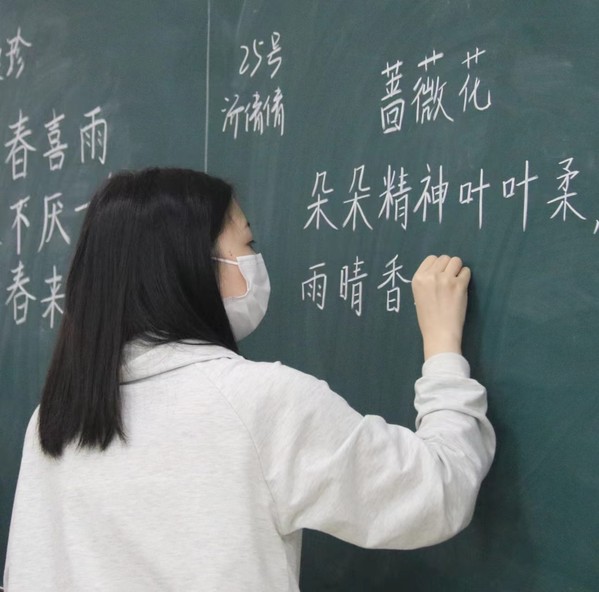 珍
春喜雨
不厌一
春来
25号
沂倩倩
蔷薇花
朵朵精神叶叶柔，
雨晴香